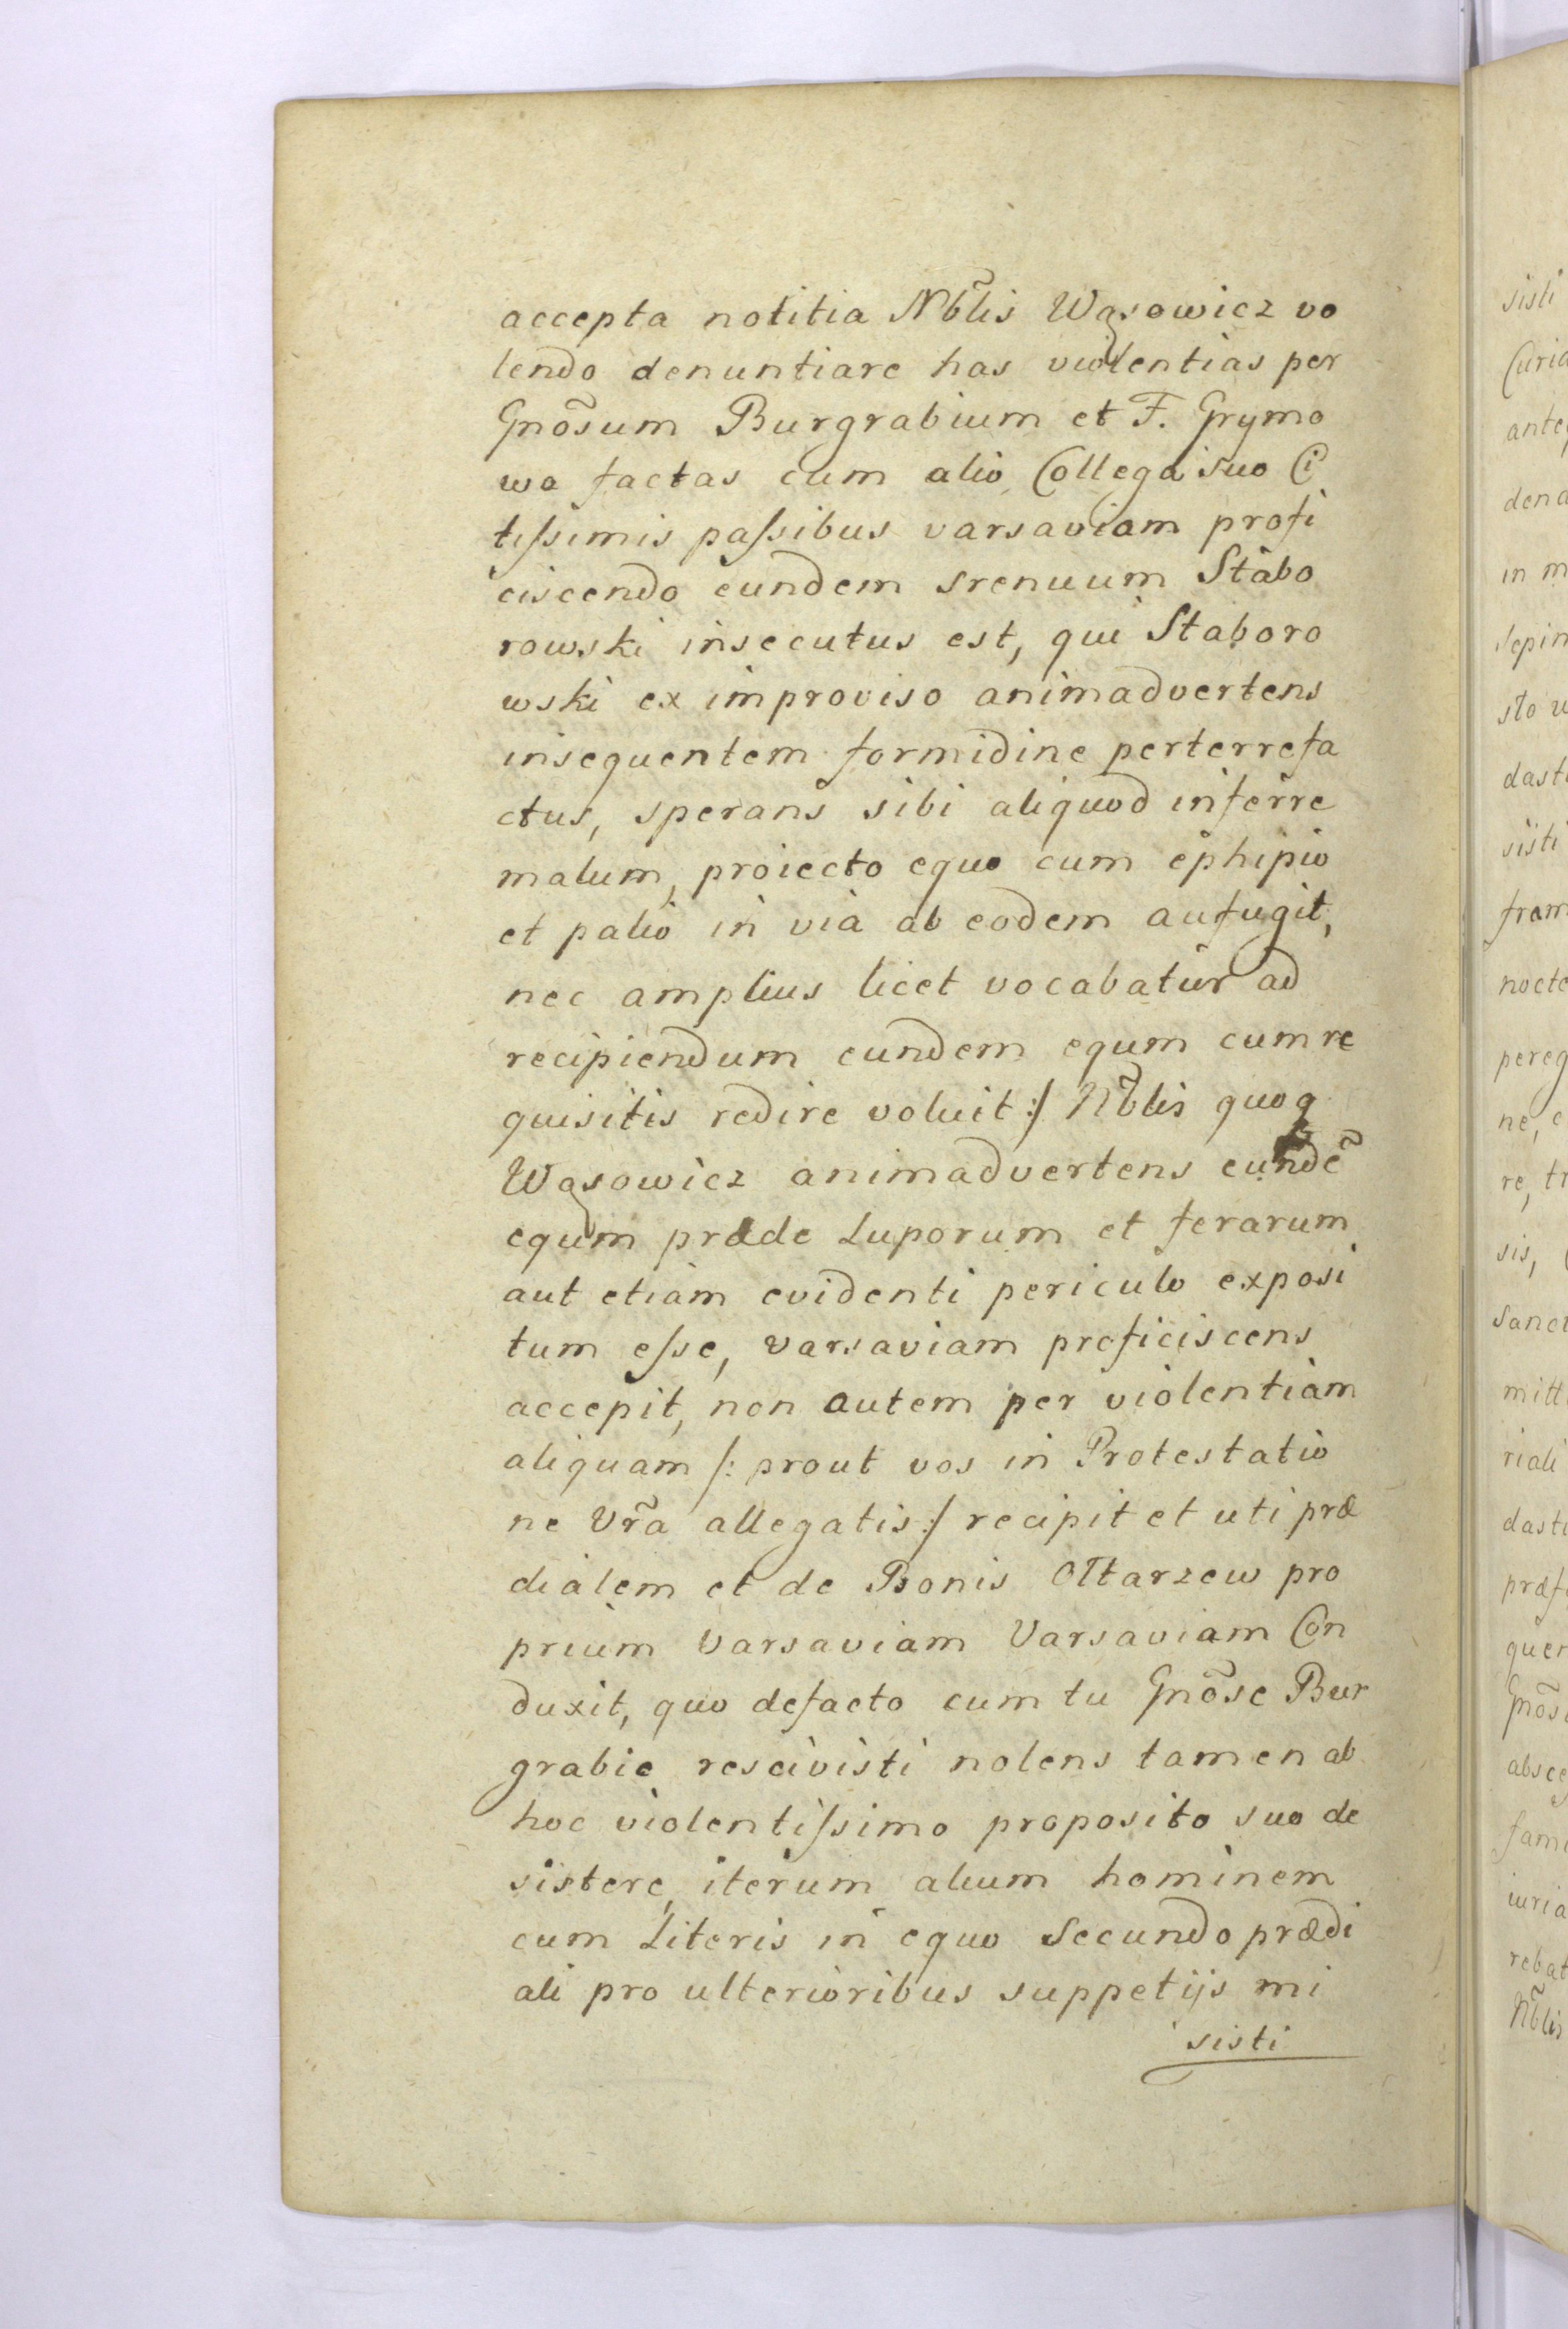 accepta notitia Nb̃lis Wąsowicz vo
lendo denuntiare has violentias per
Gnõsum Burgrabium et F. Grymo
wa factas cum alio Collega suo Ci
tiſsimis paſsibus varsaviam profi
ciscendo eundem srenuum Stabo
rowski insecutus est, qui Staboro
wski ex improviso animadvertens
insequentem formidine perterrefa
ctus, sperans sibi aliquod inferre
malum, proiecto equo cum ephipio
et palio in via ab eodem aufugit,
nec amplius licet vocabatur ad
recipiendum eundem equm cum re
quisitis redire voluit :/ Nb̃lis quoq
Wąsowicz animadvertens eundẽ
equm præde Luporum et ferarum
aut etiam evidenti periculo exposi
tum eſse, varsaviam proficiscens
accepit, non autem per violentiam
aliquam /: prout vos in Protestatio
ne Vr̃a allegatis :/ recipit et uti præ
dialem et de Bonis Ołtarzew pro
prium varsaviam Varsaviam Con
duxit, quo defacto cum tu Gnõse Bur
grabie rescivisti nolens tamen ab
hoc violentiſsimo proposito suo de
sistere, iterum alium hominem
cum Literis in equo secundo prædi
ali pro ulterioribus suppetijs mi
sisti
sisti
Curia
ante
dend
in m
sepim
sto u
dasti
sisti
fram
nocte
pereg
ne, e
re, tr
sis,
sanct
mitt
riali
dasti
præf
quer
Gnõs
absce
fam
iuria
rebat
Nb̃lis